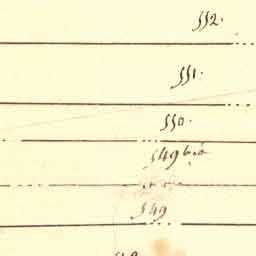 552.
551.
550.
549 bis
549